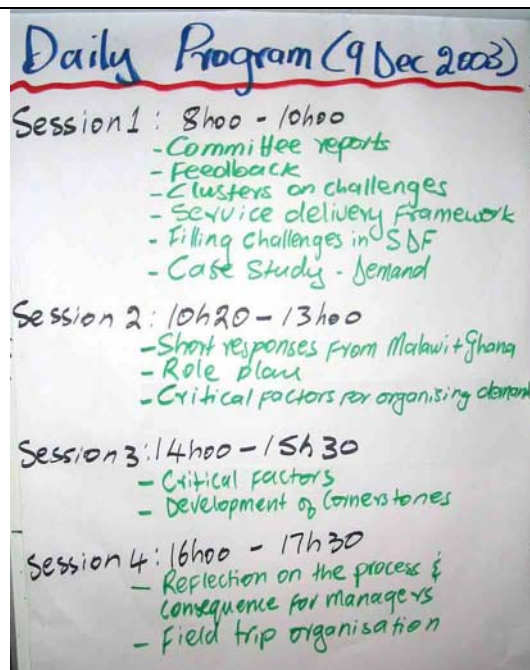 Daily Program (9 Dec 2003)
Session 1: 8h00 - 10h00
- Committee reports
- Feedback
- Clusters on challenges
- Service delivery framework
- Filling challenges in SDF
- Case Study - Demand
Session 2: 10h20 - 13h00
- Short responses from Malawi + Ghana
- Role play
- Critical factors for organising demand
Session 3: 14h00 - 15h30
- Critical factors
- Development of Cornerstones
Session 4: 16h00 - 17h30
- Reflection on the process &
consequence for managers
- Field trip organisation